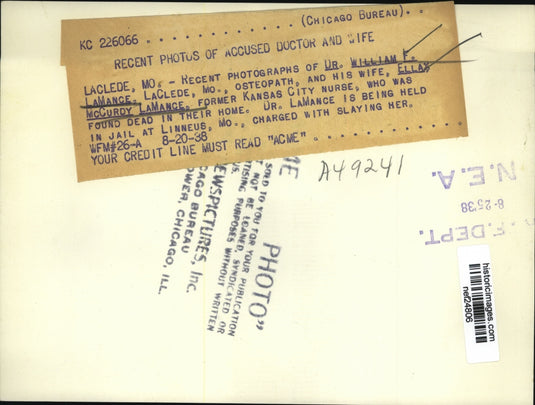 KC 226066 . . . . . . . . . . . . . . (CHICAGO BUREAU). . .
RECENT PHOTOS OF ACCUSED DOCTOR AND WIFE
LACLEDE, MO. - RECENT PHOTOGRAPHS OF DR. WILLIAM F.
LAMANCE, LACLEDE, MO., OSTEOPATH, AND HIS WIFE, ELLA
MCCURDY LAMANCE, FORMER KANSAS CITY NURSE, WHO WAS
FOUND DEAD IN THEIR HOME. DR. LAMANCE IS BEING HELD
IN JAIL AT LINNEUS, MO., CHARGED WITH SLAYING HER.
WFM#26-A 8-20-38
YOUR CREDIT LINE MUST READ "ACME" . . . . . . . . . . . . . .
A49241
PHOTO"
SOLD TO YOU FOR YOUR PUBLICATION
NOT BE LOANED, SYNDICATED OR
TISING PURPOSES WITHOUT WRITTEN
EWSPICTURES, INC.
AGO BUREAU
OWER, CHICAGO, ILL.
N.E.A.
8-25'38
F. DEPT.
historicimages.com
nef24806